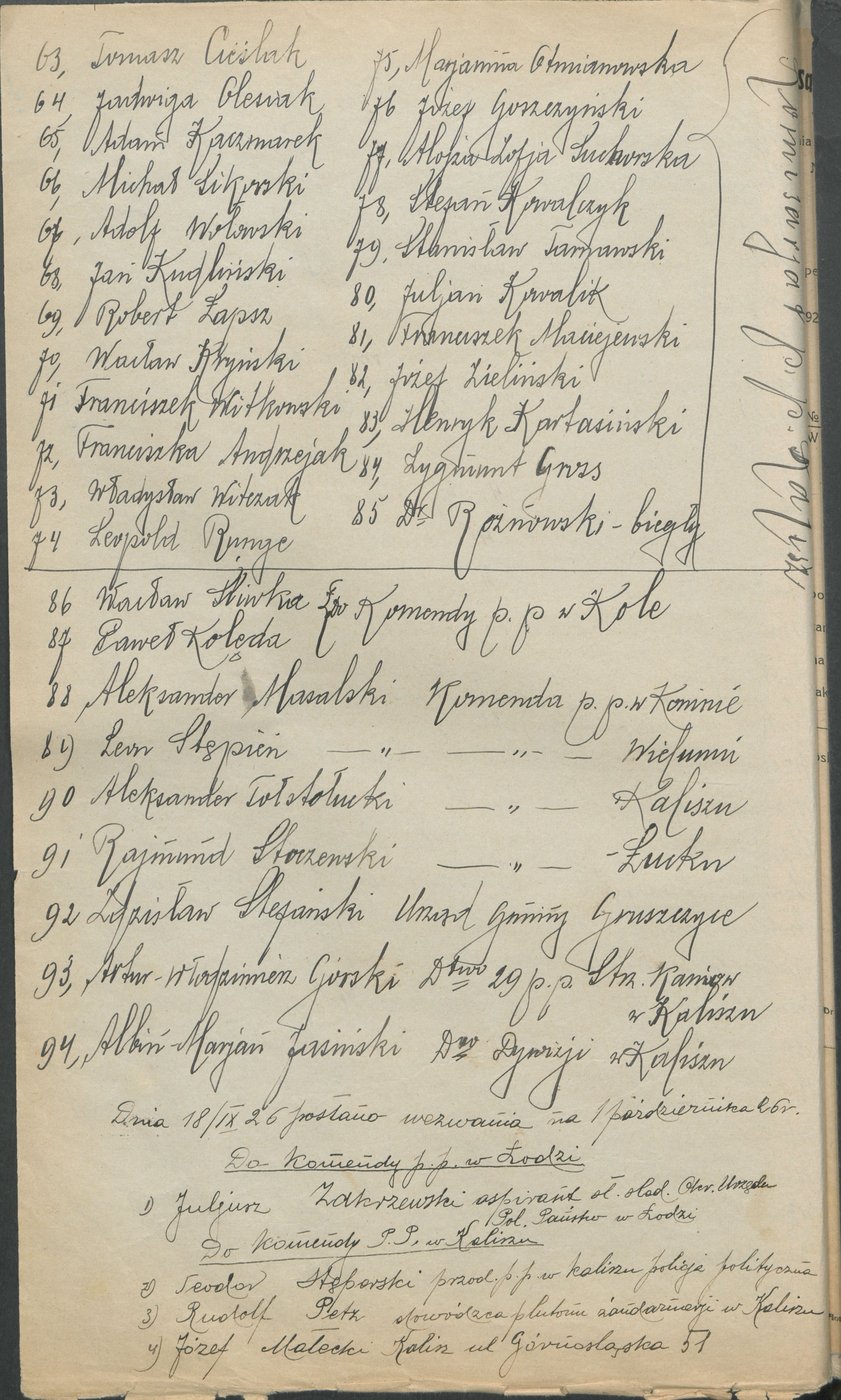 63, Tomasz Cieślak
64, Jadwiga Olesiak
65, Adam Kaczmarek
66, Michał Sikorski
67, Adolf Woławski
68, Jan Kudliński
69, Robert Łapsz
70, Wacław Kłyiński
71 Franciszek Witkowski
72, Franciszka Andrzejak
73, Władysław Witczak
74 Leopold Runge
75, Marjanna Otmianowska
76 Józef Goszczyński
77, Alojza Zofja Suchorska
78, Stefan Kowalczyk
79, Stanisław Tarnawski
80, Juljan Kowalik
81, Franciszek Maciejewski
82, Józef Zieliński
83, Henryk Kartasiński
84, Zygmunt Gross
85 Dr Rożnowski - biegły
Komisarjat p.p. Kalisz
86 Wacław Śliwka Do Komendy p. p w Kole
87 Paweł Kolęda
88 Aleksander Masalski Komenda p. p. w Koninie
89) Leon Stępień — „ — — „ — Wieluniu
90 Aleksander Tołstołucki — „ — Kaliszu
91 Rajmund Stoczewski — „ — Łucku
92 Zdzisław Stefański Urząd Gminy Gruszczyce
93, Artur-Włodzimierz Górski Dtwo 29 p. p. Strz. Kaniow
w Kaliszu
94, Albin-Marjan Jasiński Dwo Dywizji w Kaliszu
Dnia 18/IX 26 posłano wezwania na 1 października 26r.
Do Komendy p.p. w Łodzi
1) Juljusz Zakrzewski aspirant sł. śled. Okr. Urzędu
Pol. Państw w Łodzi
Do Komendy P.P. w Kaliszu
2) Teodor Stęporski przod. p.p w Kaliszu policja polityczna
3) Rudolf Petz dowódca plutonu żandarmerji w Kaliszu
4) Józef Małecki Kalisz ul Górnośląska 51